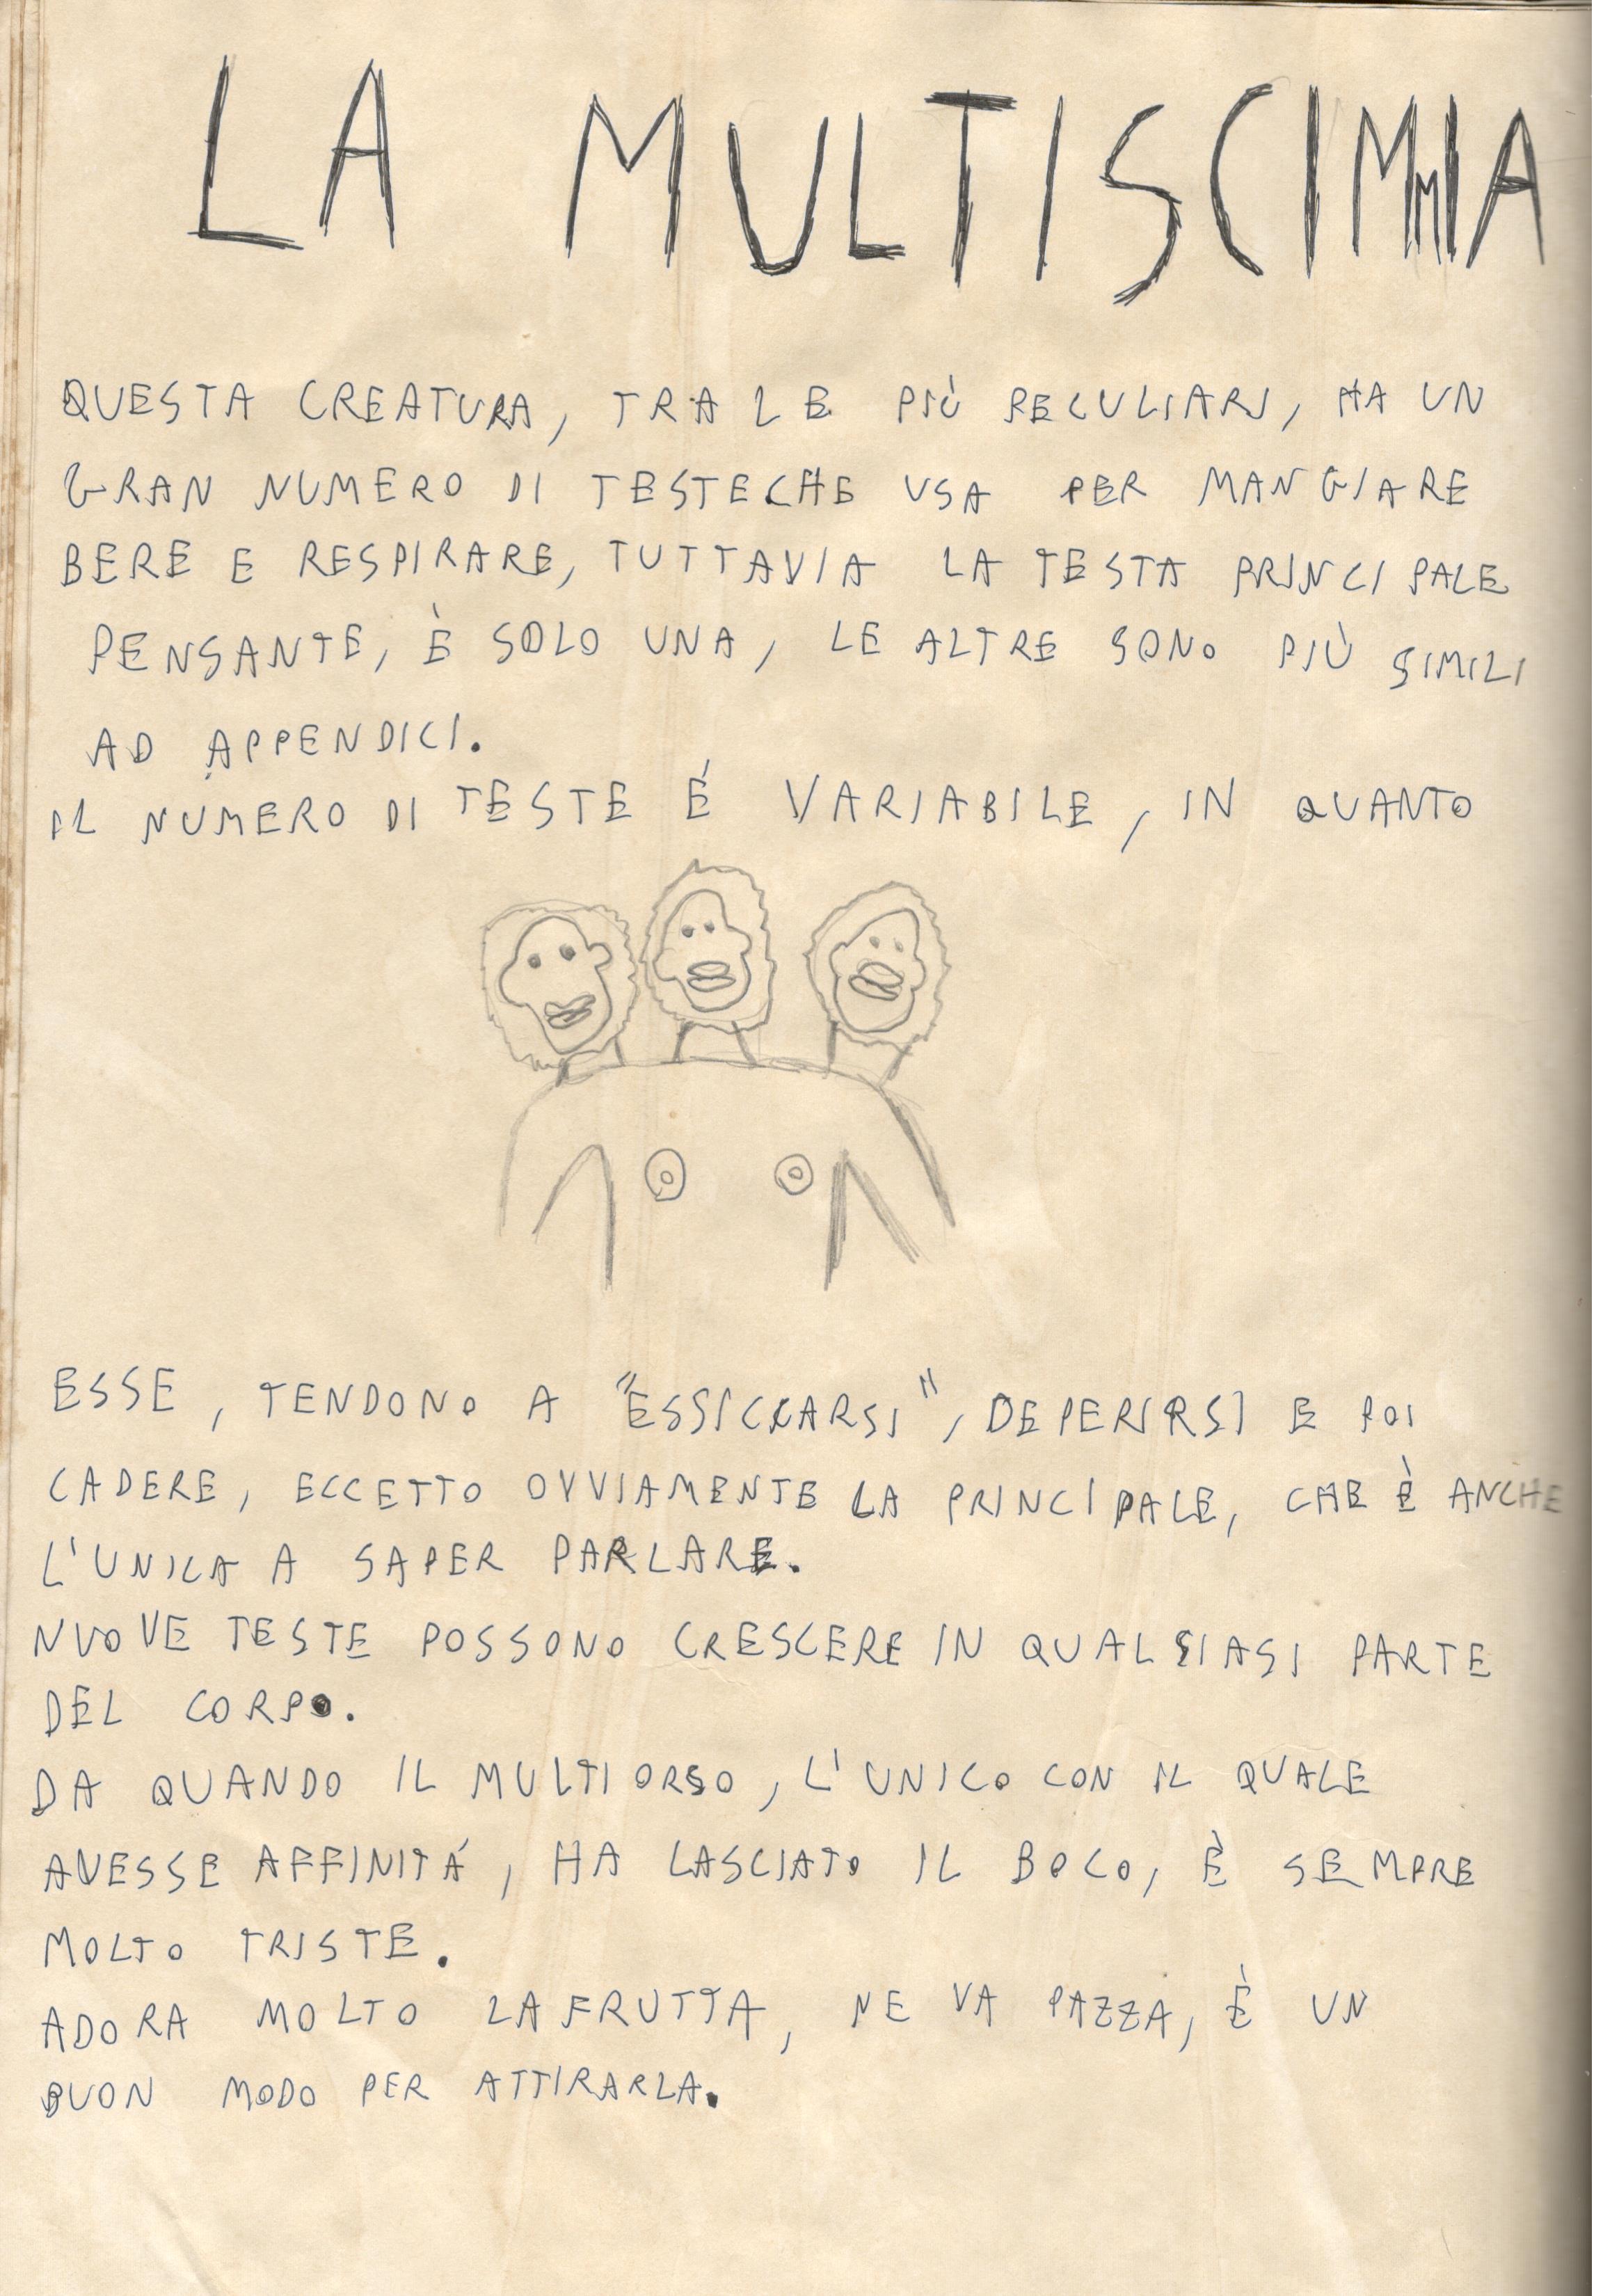 LA MULTISCIMMIA
QUESTA CREATURA, TRA LE PIÙ PECULIARI, HA UN
GRAN NUMERO DI TESTE CHE USA PER MANGIARE
BERE E RESPIRARE, TUTTAVIA LA TESTA PRINCIPALE
PENSANTE, È SOLO UNA, LE ALTRE SONO PIÙ SIMILI
AD APPENDICI.
IL NUMERO DI TESTE É VARIABILE, IN QUANTO
ESSE, TENDONO A "ESSICCARSI", DEPERIRSI E POI
CADERE, ECCETTO OVVIAMENTE LA PRINCIPALE, CHE È ANCHE
L'UNICA A SAPER PARLARE.
NUOVE TESTE POSSONO CRESCERE IN QUALSIASI PARTE
DEL CORPO.
DA QUANDO IL MULTIORSO, L'UNICO CON IL QUALE
AVESSE AFFINITÁ, HA LASCIATO IL BOCO, È SEMPRE
MOLTO TRISTE.
ADORA MOLTO LA FRUTTA, NE VA PAZZA, È UN
BUON MODO PER ATTIRARLA.